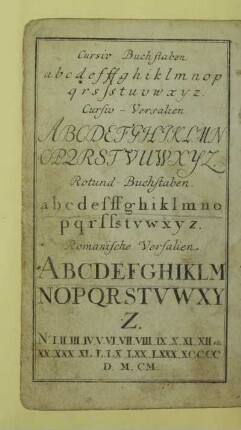 Cursiv Buchstaben
abcdefffghiklmnop
qrsſstuvwxyz.
Cursiv-Versalien
ABCDEFGHIKLMN
OPQRSTVUWXYZ
Rotund-Buchstaben.
abcdefffghiklmno
pqrſsstvwxyz.
Romanische Versalien
ABCDEFGHIKLM
NOPQRSTVWXY
Z.
N. I II III IV V VI VII VIII IX X XI XII
XX XXX XL L LX LXX LXXX XC C CC
D. M. CM.